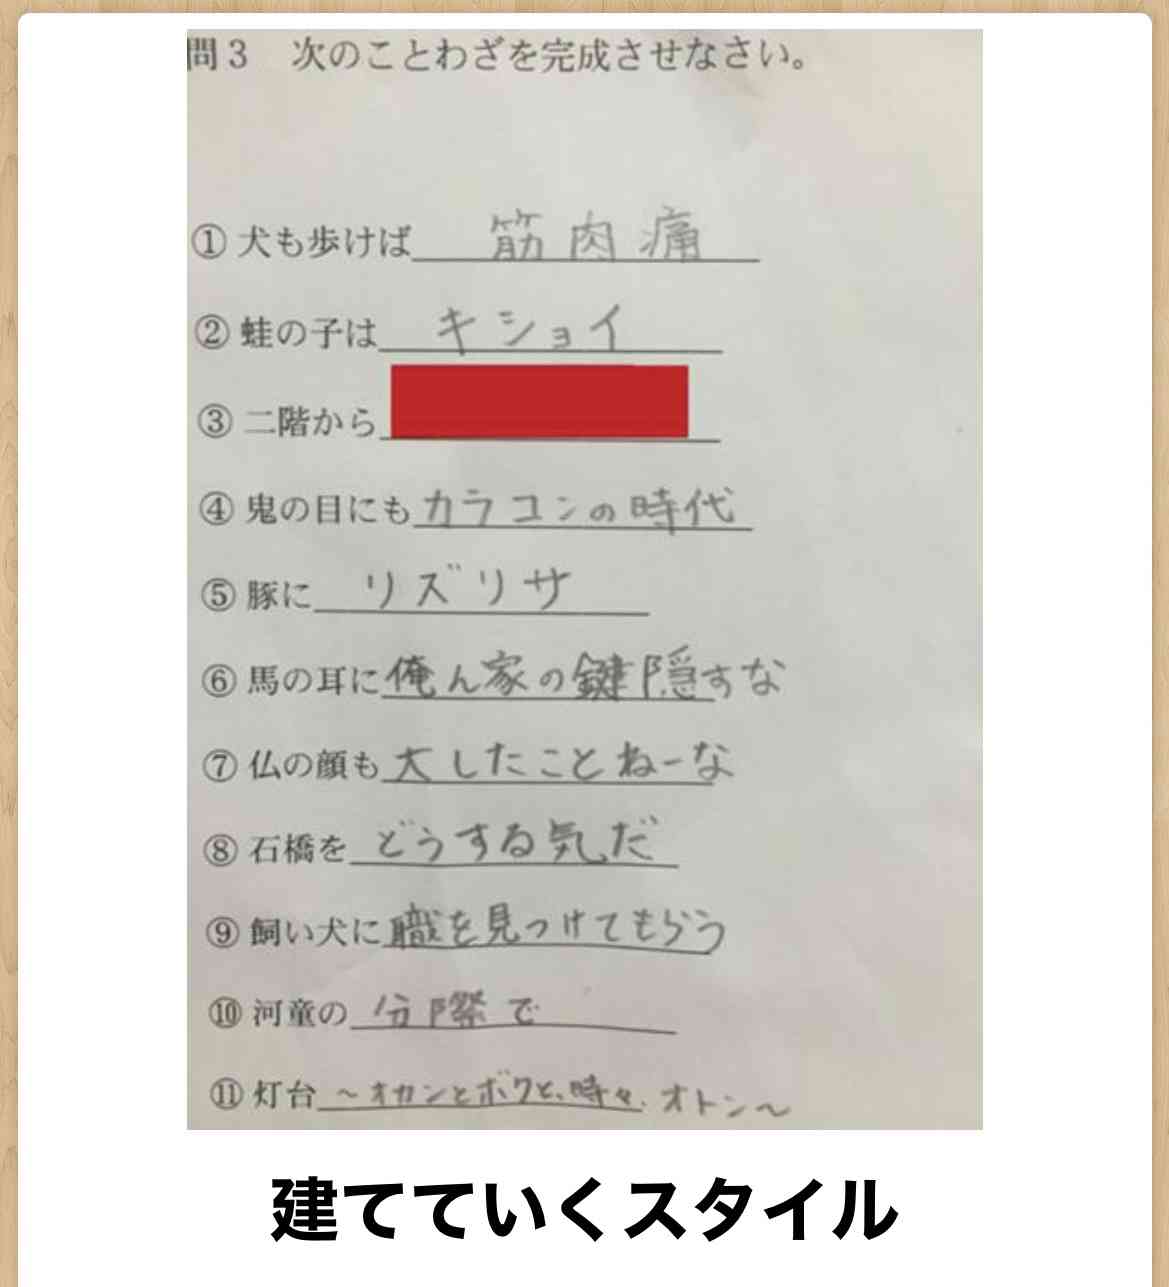 問3 次のことわざを完成させなさい。
① 犬も歩けば 筋肉痛
② 蛙の子は キショイ
③ 二階から
④ 鬼の目にも カラコンの時代
⑤ 豚に リズリサ
⑥ 馬の耳に 俺ん家の鍵隠すな
⑦ 仏の顔も 大したことねーな
⑧ 石橋を どうする気だ
⑨ 飼い犬に 職を見つけてもらう
⑩ 河童の 分際で
⑪ 灯台 ~オカンとボクと、時々、オトン~
建てていくスタイル